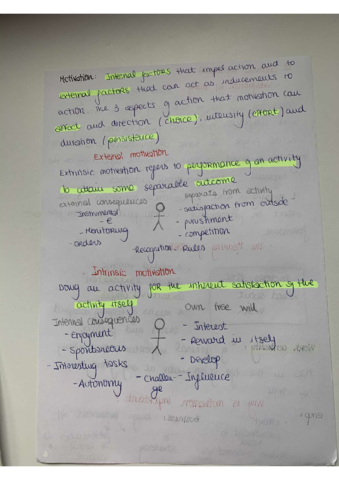 Motivation: Internal factors that impel action and to
external factors that can act as inducements to
action. The 3 aspects of action that motivation can
affect and direction (choice), intensity (effort) and
duration (persistence)
External motivation
Extrinsic motivation refers to performance of an activity
to attain some separable outcome
external consequences
separate from activity
- Instrumental
- satisfaction from outside
- €
- punishment
- Monitoring
- competition
- orders
- Recognition
- Rules
Intrinsic motivation
Doing an activity for the inherent satisfaction of the
activity itself
Own free will
Internal consequences
- Interest
- Enjoyment
- Reward is itself
- Spontaneous
- Develop
- Interesting tasks
- Challen-
ge
- Influence
- Autonomy